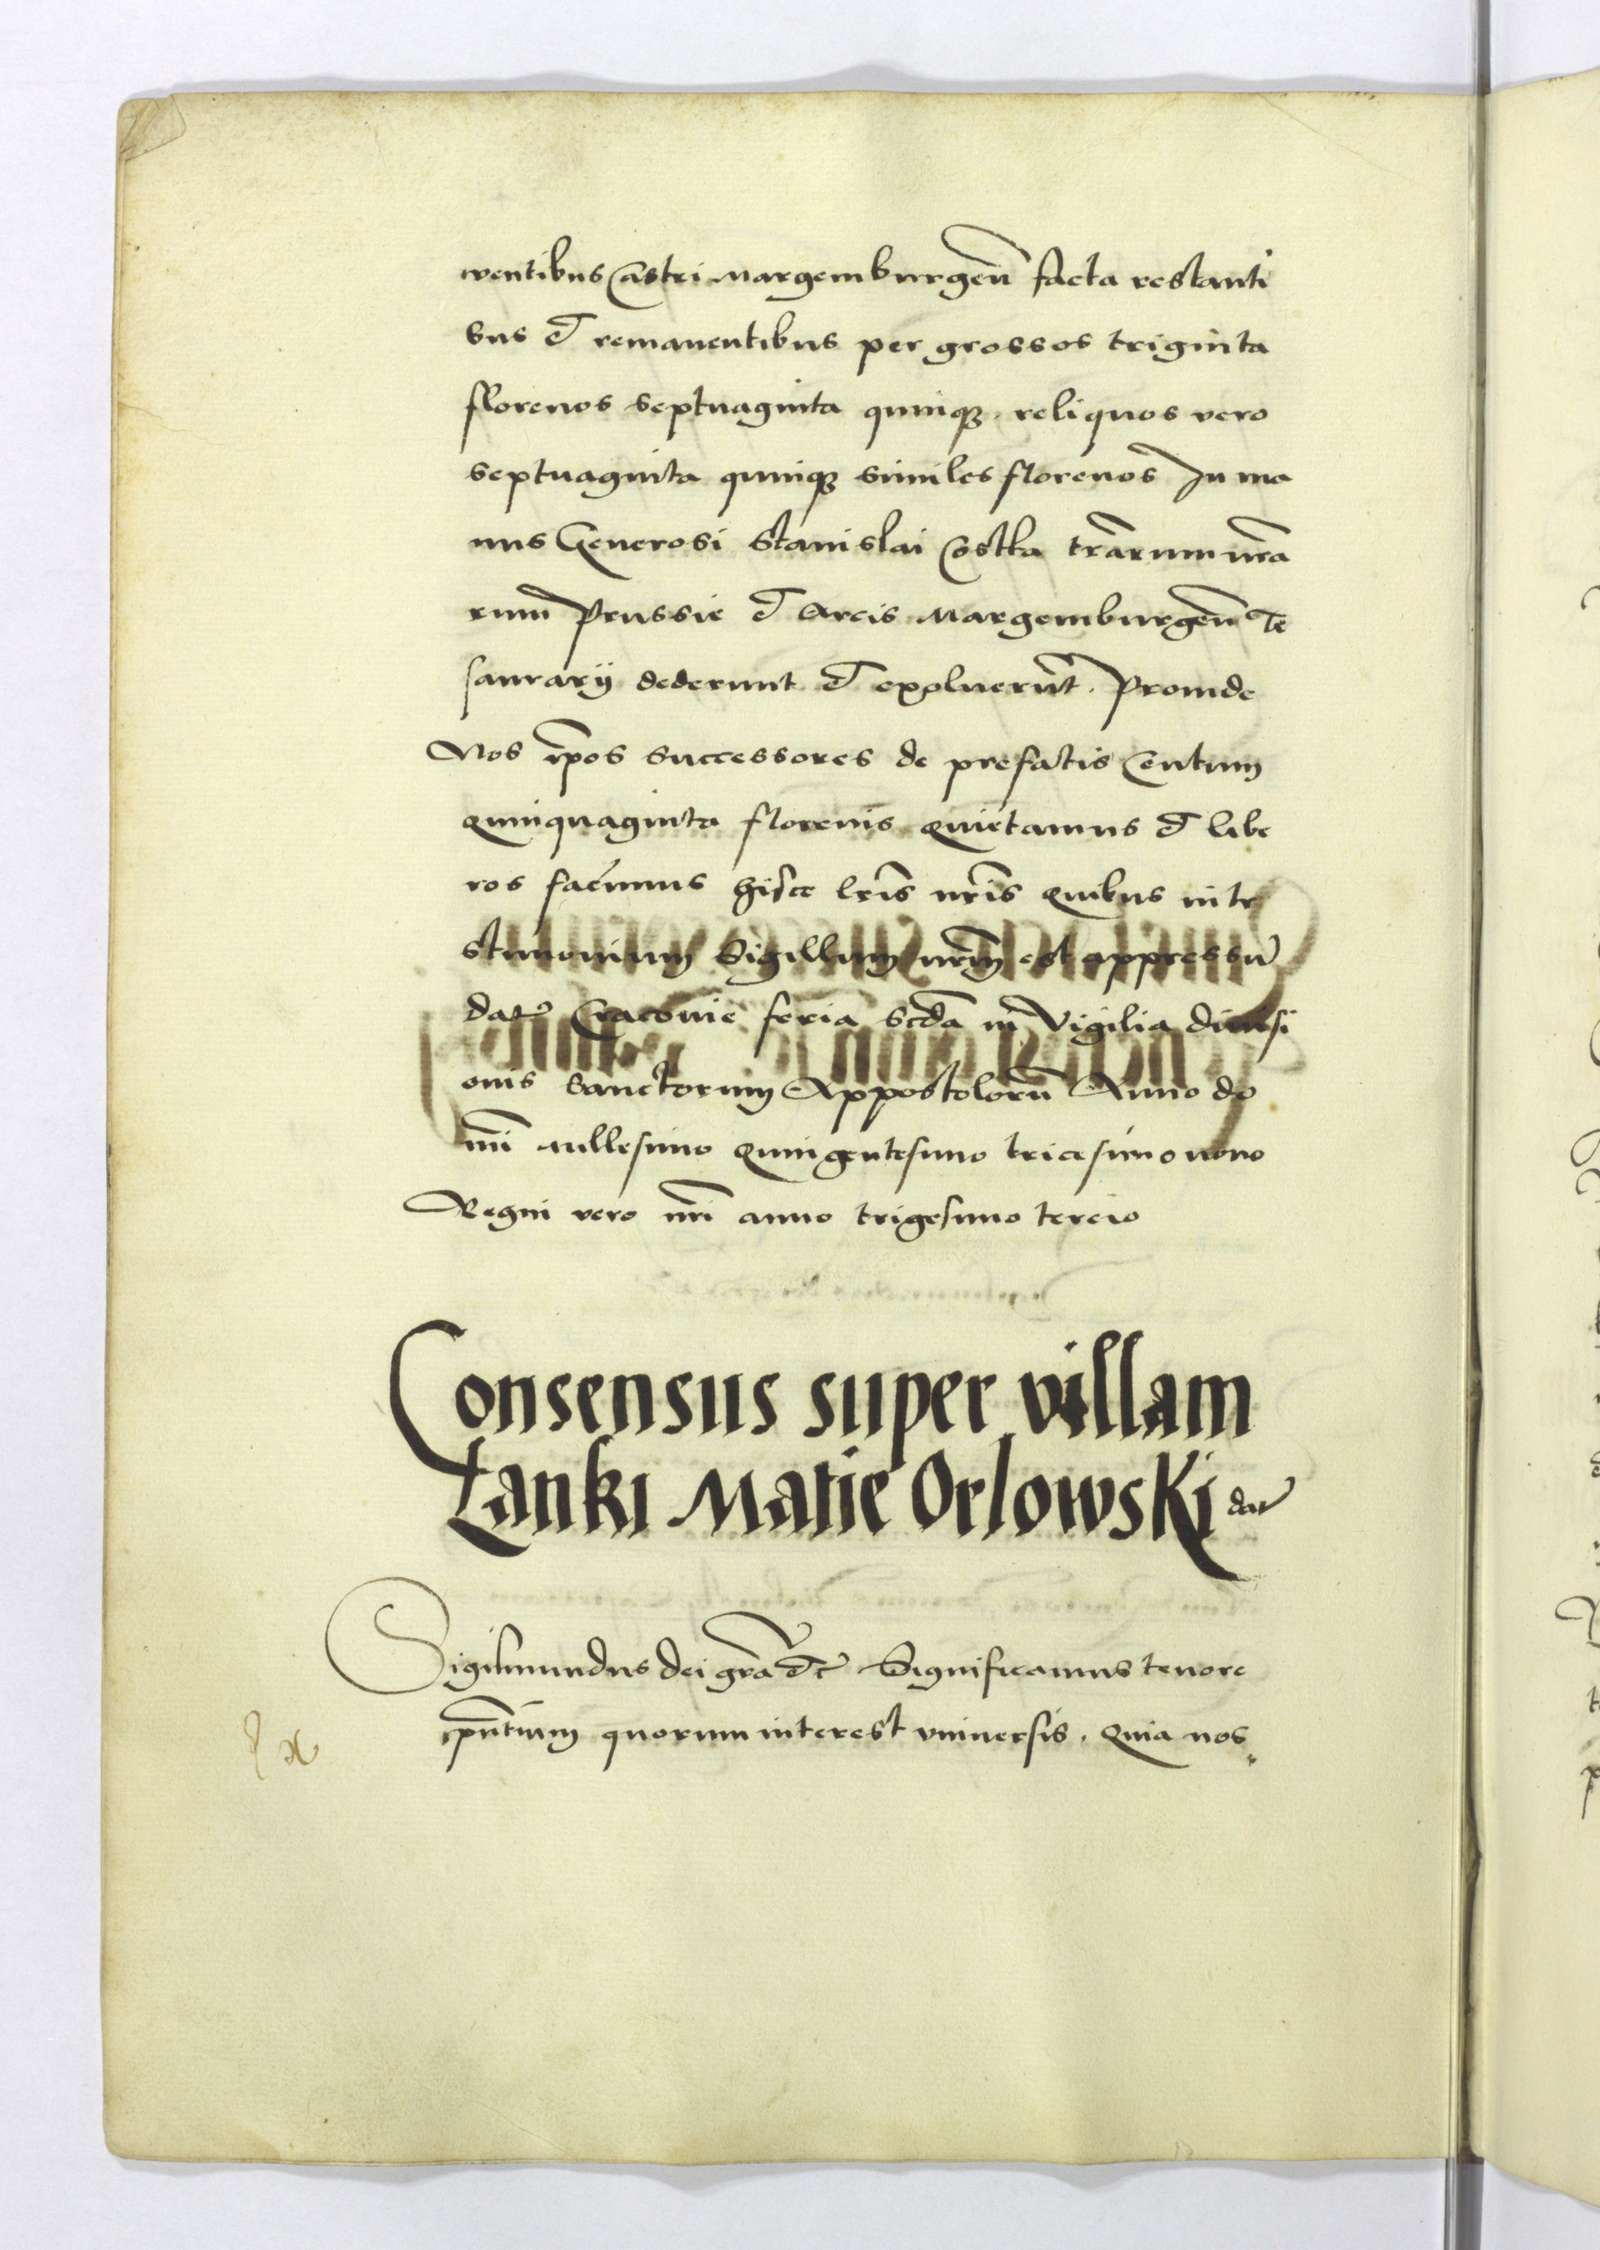 ventibus Castri Margemburgeñ facta restanti
bus et remanentibus per grossos triginta
florenos septuaginta quinqȝ reliquos vero
septuaginta quinqȝ similes florenos In ma
nus Generosi Stanislai Costka trãrum nrã
rum Prussie et Arcis Margemburgeñ Te
saurarij dederunt et exoluerũt. Proinde
Nos ip̃os successores de prefatis Centum
quinquaginta florenis quietamus et libe
ros facimus hisce lrĩs nrĩs quibus in te
stimonium Sigillum nrm̃ est appressũ
dat̃ Cracovie feria scďa in Vigilia divisi
onis Sanctorum Appostolorũ Anno do
mĩ millesimo quingentesimo tricesimo nono
Regni vero nrĩ anno trigesimo tercio
Consensus super villam
Lanki Matie Orlowski dat̃
Sigismundus dei grã etc̃ Significamus tenore
pñtium quorum interest vniversis. Quia nos